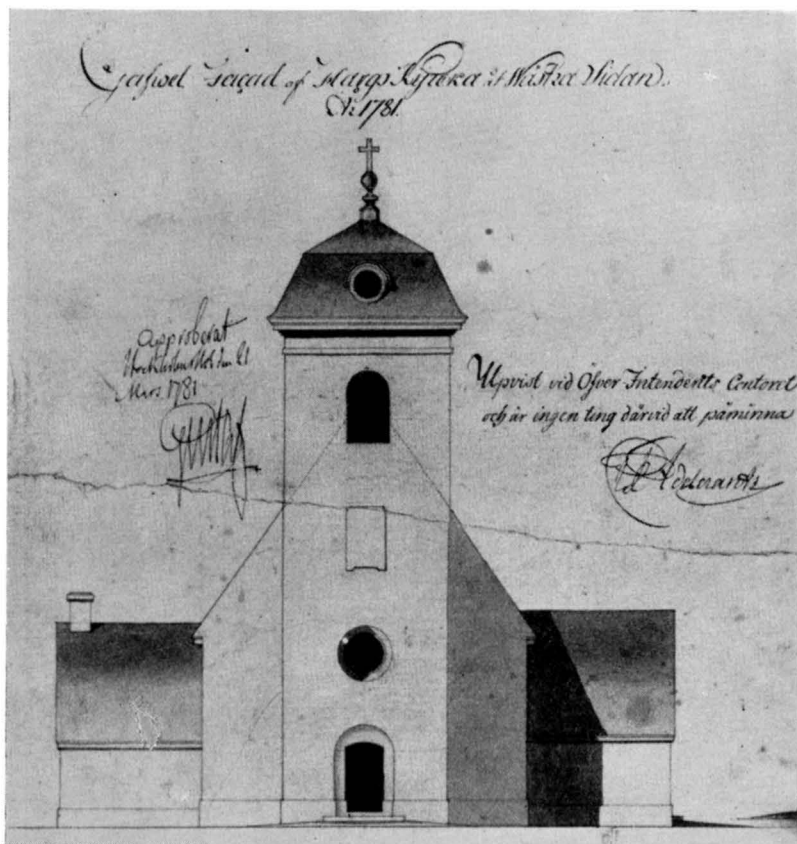 Gafwel Façad af Hargs Kyrcka åt Wästra Sidan.
År 1781.
Approberat
Stockholms Slott den 21
Mars 1781
Upvist vid Öfver Intendents Contoret
och är ingen ting därvid att påminna
Adelcrantz